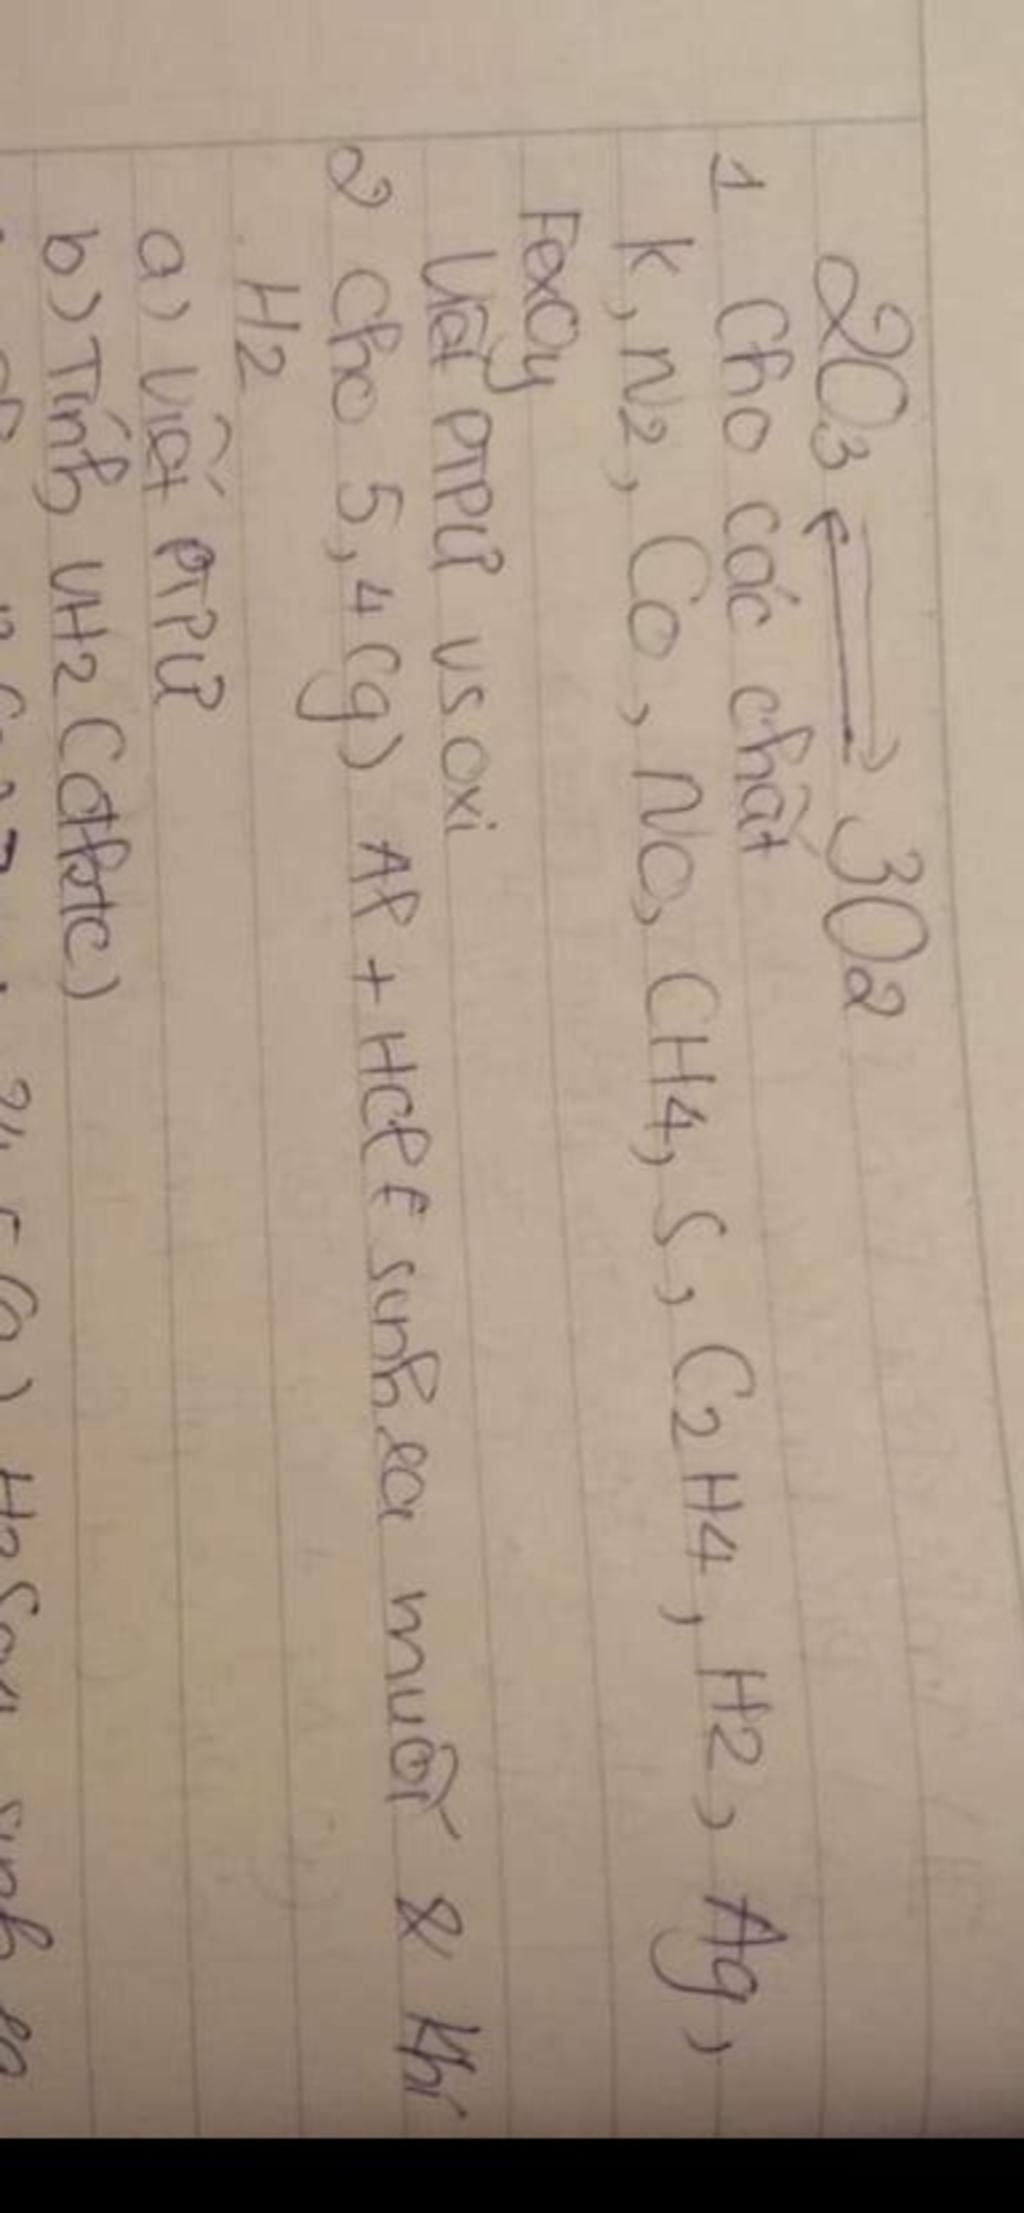 2O3 ⇌ 3O2
1 Cho các chất
K, N2, Co, No, CH4, S, C2H4, H2, Ag,
FexOy
Viết PTPƯ vs oxi
2 Cho 5,4(g) Al + HCl t sinh ra muối & khí
H2
a) Viết PTPƯ
b) Tính VH2 (đktc)